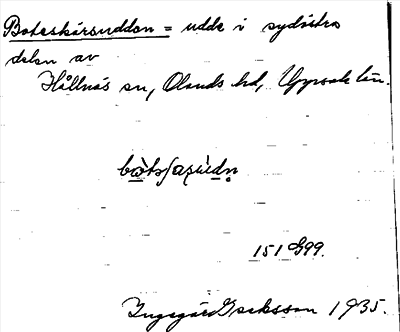 Boteskärsudden = udde i sydöstra
delen av
Hållnäs sn, Olands hd, Uppsala län.
151 G99.
Ingegärd Isaksson 1935.